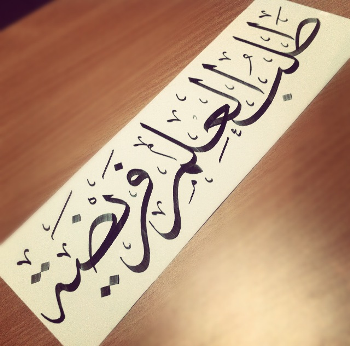 طلب العلم فريضة